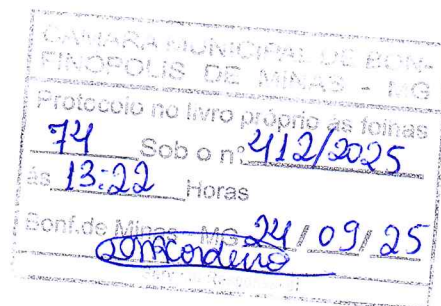 CAMARA MUNICIPAL DE BON-
FINOPOLIS DE MINAS - MG
Protocolo no livro próprio às folhas
74 Sob o nº 412/2025
às 13:22 Horas
Bonf.de Minas - MG 24 / 09 / 25